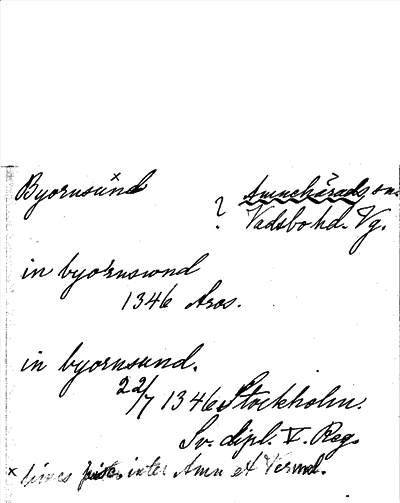 Byornsund ˣ
? Amnehärads sn.
Vadsbo hd. Vg.
in byornswnd
1346 Aros.
in byornsund.
22/7 1346 Stockholm.
Sv. dipl. V. Reg.
× limes inter Amn et Verml.